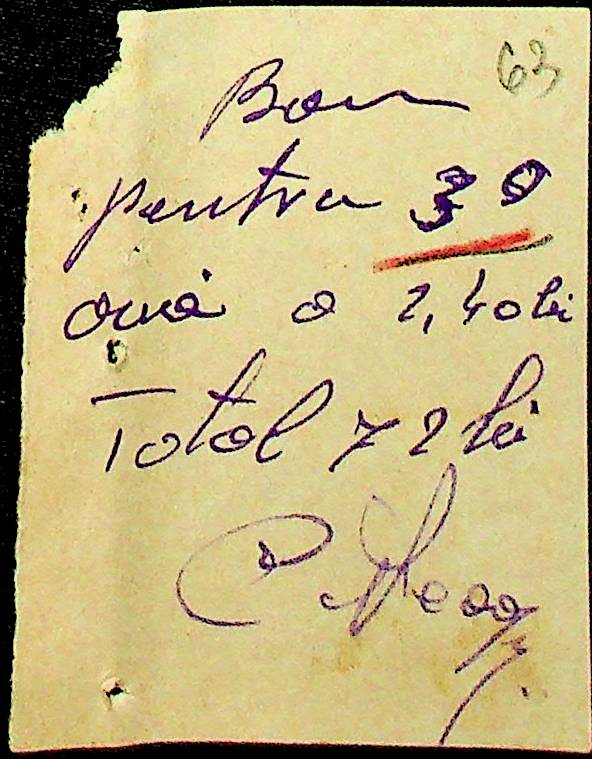 63
Bon
pentru 30
ouă a 2,40 lei
Total 72 lei